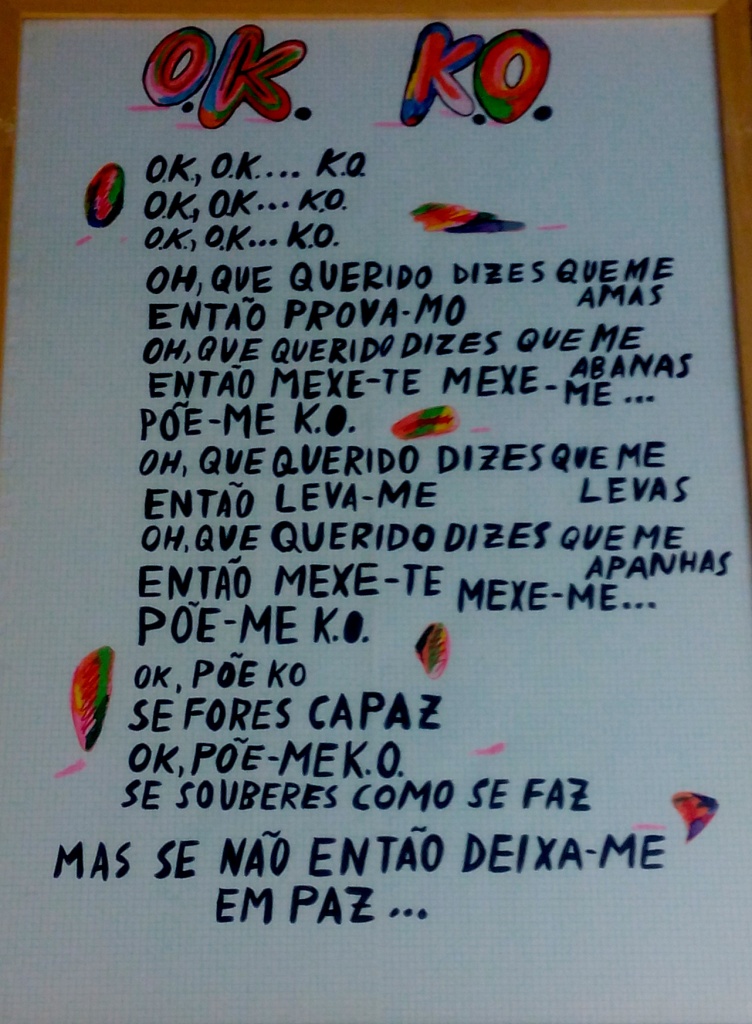 O.K. K.O.
O.K., O.K.... K.O.
O.K, O.K... K.O.
O.K., O.K... K.O.
OH, QUE QUERIDO DIZES QUE ME
AMAS
ENTÃO PROVA-MO
OH, QUE QUERIDO DIZES QUE ME
ABANAS
ENTÃO MEXE-TE MEXE-ME...
PÕE-ME K.O.
OH, QUE QUERIDO DIZES QUE ME
LEVAS
ENTÃO LEVA-ME
OH, QUE QUERIDO DIZES QUE ME
APANHAS
ENTÃO MEXE-TE MEXE-ME...
PÕE-ME K.O.
OK, PÕE KO
SE FORES CAPAZ
OK, PÕE-ME K.O.
SE SOUBERES COMO SE FAZ
MAS SE NÃO ENTÃO DEIXA-ME
EM PAZ...